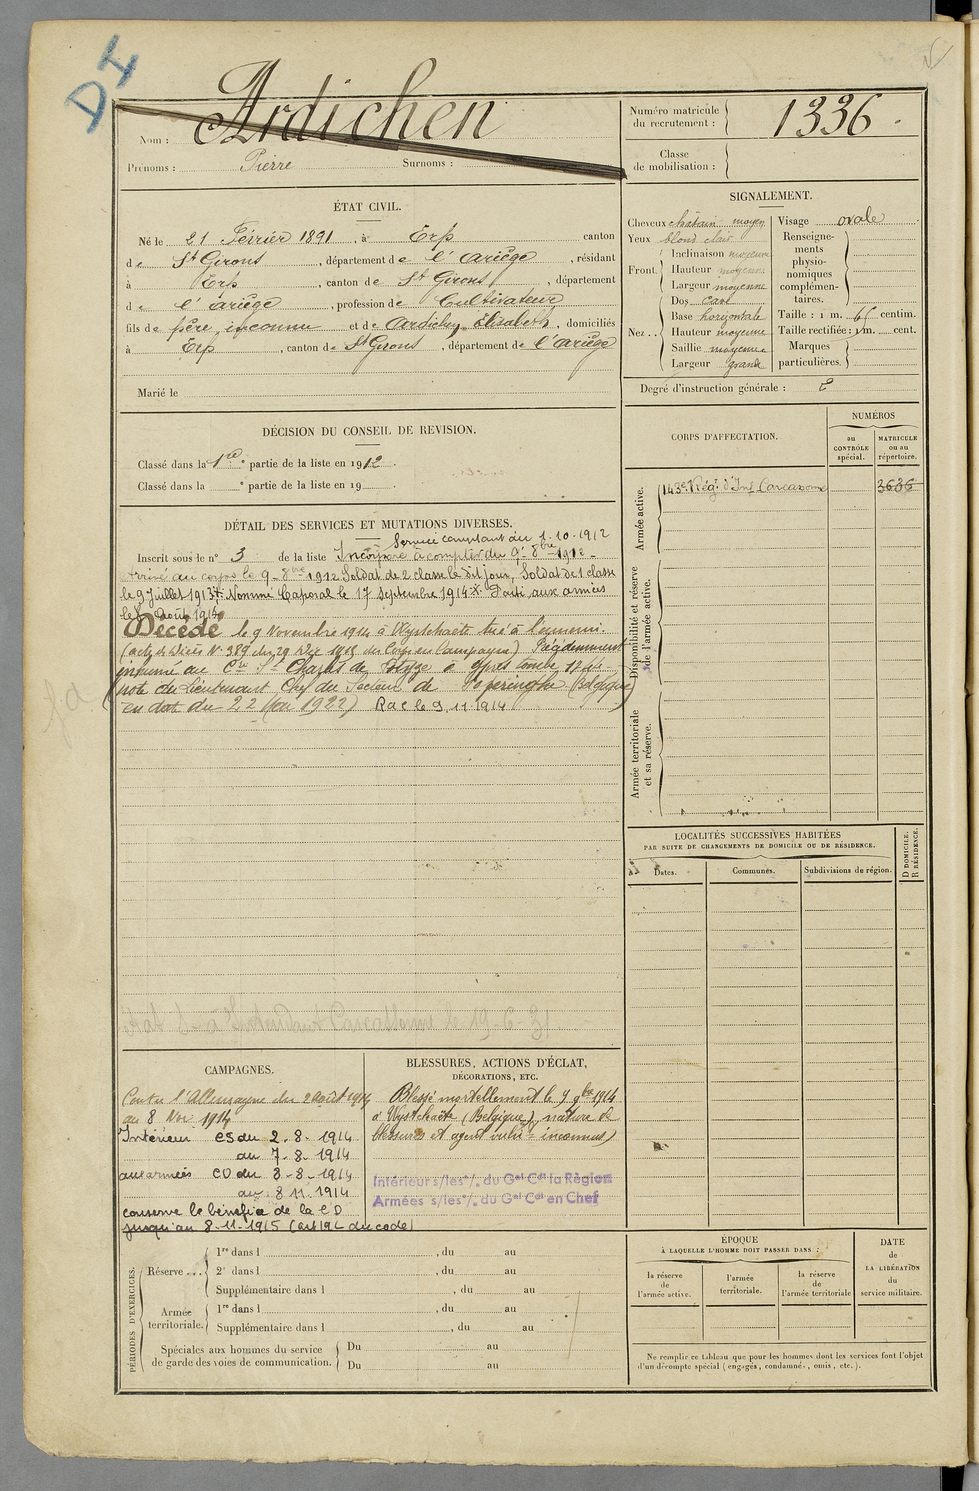 DI
Nom : Ardichen
Prénoms : Pierre Surnoms :
Numéro matricule
du recrutement : 1336.
Classe
de mobilisation :
ÉTAT CIVIL.
Né le 21 Février 1891, à Erp canton
de St Girons, département de l'Ariège, résidant
à Erp, canton de St Girons, département
de l'Ariège, profession de Cultivateur
fils de père inconnu et de Ardichen Elisabeth, domiciliés
à Erp, canton de St Girons, département de l'Ariège
Marié le
SIGNALEMENT.
Cheveux châtain moyen
Yeux blond clair
Front. Inclinaison moyenne
Hauteur moyenne
Largeur moyenne
Nez .. Dos cave
Base horizontale
Hauteur moyenne
Saillie moyenne
Largeur grande
Visage ovale
Renseigne-
ments
physio-
nomiques
complémen-
taires.
Taille : 1 m. 65 centim.
Taille rectifiée : 1 m. cent.
Marques
particulières.
Degré d'instruction générale : 2
DÉCISION DU CONSEIL DE REVISION.
Classé dans la 1re partie de la liste en 1912.
Classé dans la e partie de la liste en 19 .
DÉTAIL DES SERVICES ET MUTATIONS DIVERSES.
Service comptant du 1-10-1912
Inscrit sous le n° 3 de la liste Incorporé à compter du 9 8bre 1912 -
Arrivé au corps le 9 - 8bre 1912 Soldat de 2 classe le dit jour, Soldat de 1 classe
le 9 Juillet 1913. Nommé Caporal le 17 Septembre 1914. Parti aux armées
le 8 Août 1914
Décédé le 9 Novembre 1914 à Wystchaëte tué à l'ennemi.
(acte de décès N° 389 du 29 Déc 1915 du Corps en Campagne) Précédemment
inhumé au Cre St Charles de Potyze à Ypres tombe
note du Lieutenant Chef du Secteur de Poperinghe (Belgique)
en date du 22 Mai 1922) RdC le 9.11.1914
Carcassonne le 19-6-31
CORPS D'AFFECTATION.
NUMÉROS
au
CONTRÔLE
spécial.
MATRICULE
ou au
répertoire.
Armée active.
143e Régt d'Inf Carcassonne 3636
Disponibilité et réserve
de l'armée active.
Armée territoriale
et sa réserve.
LOCALITÉS SUCCESSIVES HABITÉES
PAR SUITE DE CHANGEMENTS DE DOMICILE OU DE RÉSIDENCE.
Dates. Communes. Subdivisions de région.
D DOMICILE.
R RÉSIDENCE.
CAMPAGNES.
Contre l'Allemagne du 2 Août 1914
au 8 Nov 1914
Intérieur CS du 2-8-1914
au 7-8-1914
aux armées CD du 8-8-1914
au 8 11.1914
conserve le bénéfice de la CD
jusqu'au 8-11-1915 (art 192 du code)
BLESSURES, ACTIONS D'ÉCLAT,
DÉCORATIONS, ETC.
Blessé mortellement le 9 9bre 1914
à Wystchaëte (Belgique) nature de
blessures et agent vulnt inconnus)
Intérieur s/les °/. du Gal Cdt la Région
Armées s/les °/. du Gal Cdt en Chef
PÉRIODES D'EXERCICES.
Réserve ... 1re dans l , du au
2e dans l , du au
Supplémentaire dans l , du au
Armée
territoriale. 1re dans l , du au
Supplémentaire dans l , du au
Spéciales aux hommes du service
de garde des voies de communication. Du au
Du au
ÉPOQUE
À LAQUELLE L'HOMME DOIT PASSER DANS :
la réserve
de
l'armée active.
l'armée
territoriale.
la réserve
de
l'armée territoriale
DATE
de
LA LIBÉRATION
du
service militaire.
Ne remplir ce tableau que pour les hommes dont les services font l'objet
d'un décompte spécial (engagés, condamnés, omis, etc.).